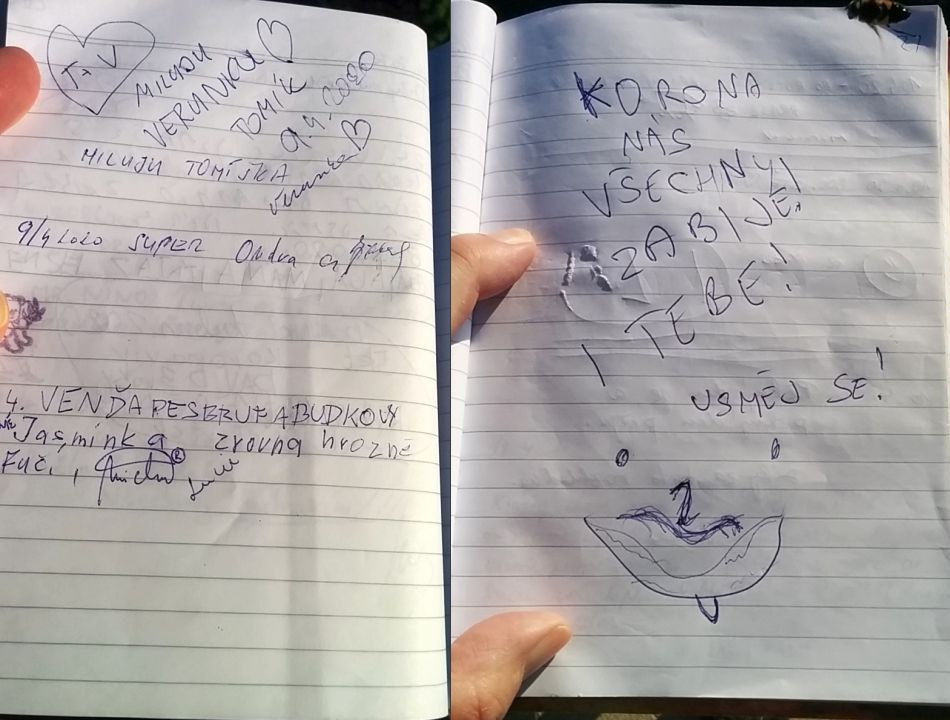 T + V
MILUJU
VERUNKU
TOMÍK
9.4. 2020
MILUJU TOMÍŠKA
Verunka
9/4 2020 SUPER Ondra a
4. VENĎA PES BRUF A BUDKOVI
Jasmínka zrovna hrozně
Fučí,
KORONA
NÁS
VŠECHNY
ZABIJE
I TEBE!
USMĚJ SE!